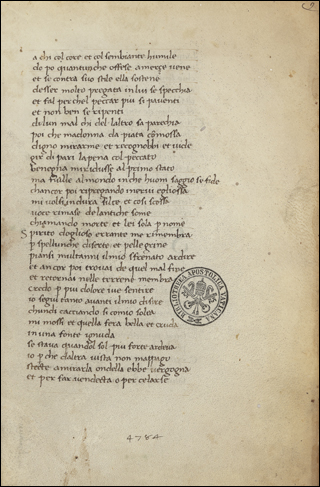 a chi col core et col sembiante humile
do po quantunche offese a merçe vene
et se contra suo stile ella sostene
desser molto pregata in lui se specchia
et fal perchel peccar piu si paventi
et non ben se ripenti
de lun mal chi del laltro sa parechia
poi che madonna da pieta cõmossa
digno mirarme et recognobbi et vide
gir di pari la pena col peccato
benegna mi ridusse al primo stato
ma nulla al mondo in che huom saggio se fide
chancor poi ripregando i nervi et lossa
mi volse in dura selce et cosi scossa
voce rimase de lantiche some
chiamando morte et lei sola p nome
Spirito doglioso errante me rimembra
p spellunche diserte et pellegrine
piansi multanni il mio sfrenato ardire
et ancor poi trovai de quel mal fine
et retornai nelle terrene membra
credo p piu dolore ive sentire
io segui tanto avanti il mio desire
chundi cacciando si comio solea
mi mossi et quella fera bella et cruda
in una fonte ignuda
se stava quandol sol piu forte ardeva
io p che daltra vista non mappago
stetti amirarla ondella ebbe vergogna
et per far vendecta o per celarse
4784
BIBLIOTHECA APOSTOLICA VATICANA